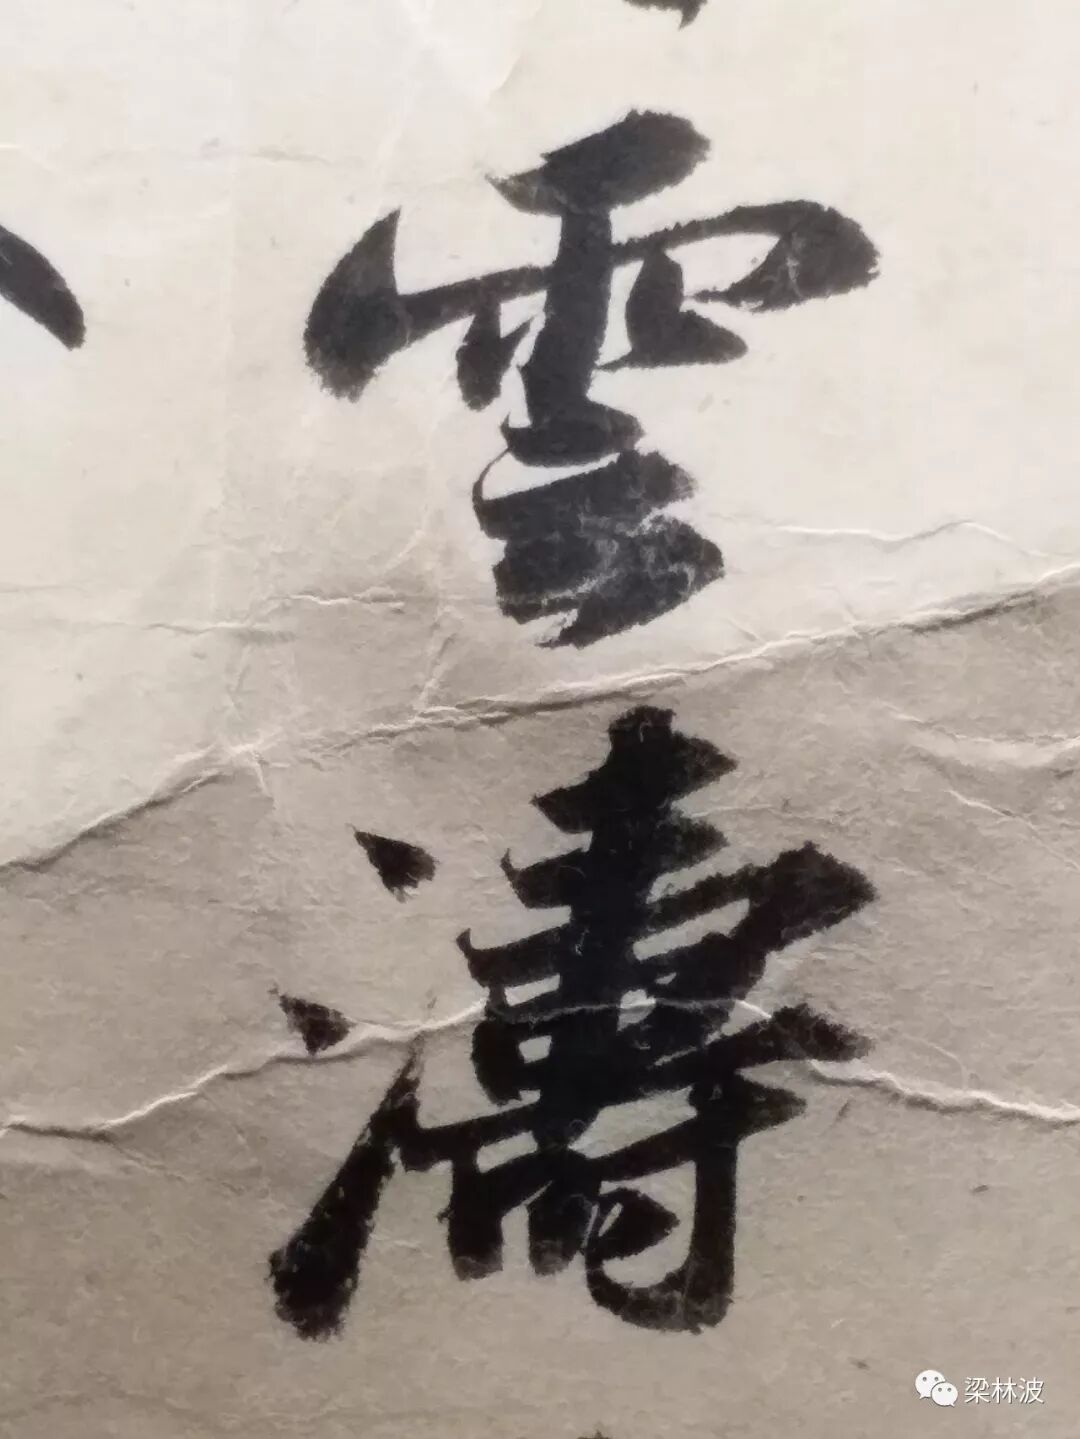 雲濤
梁林波